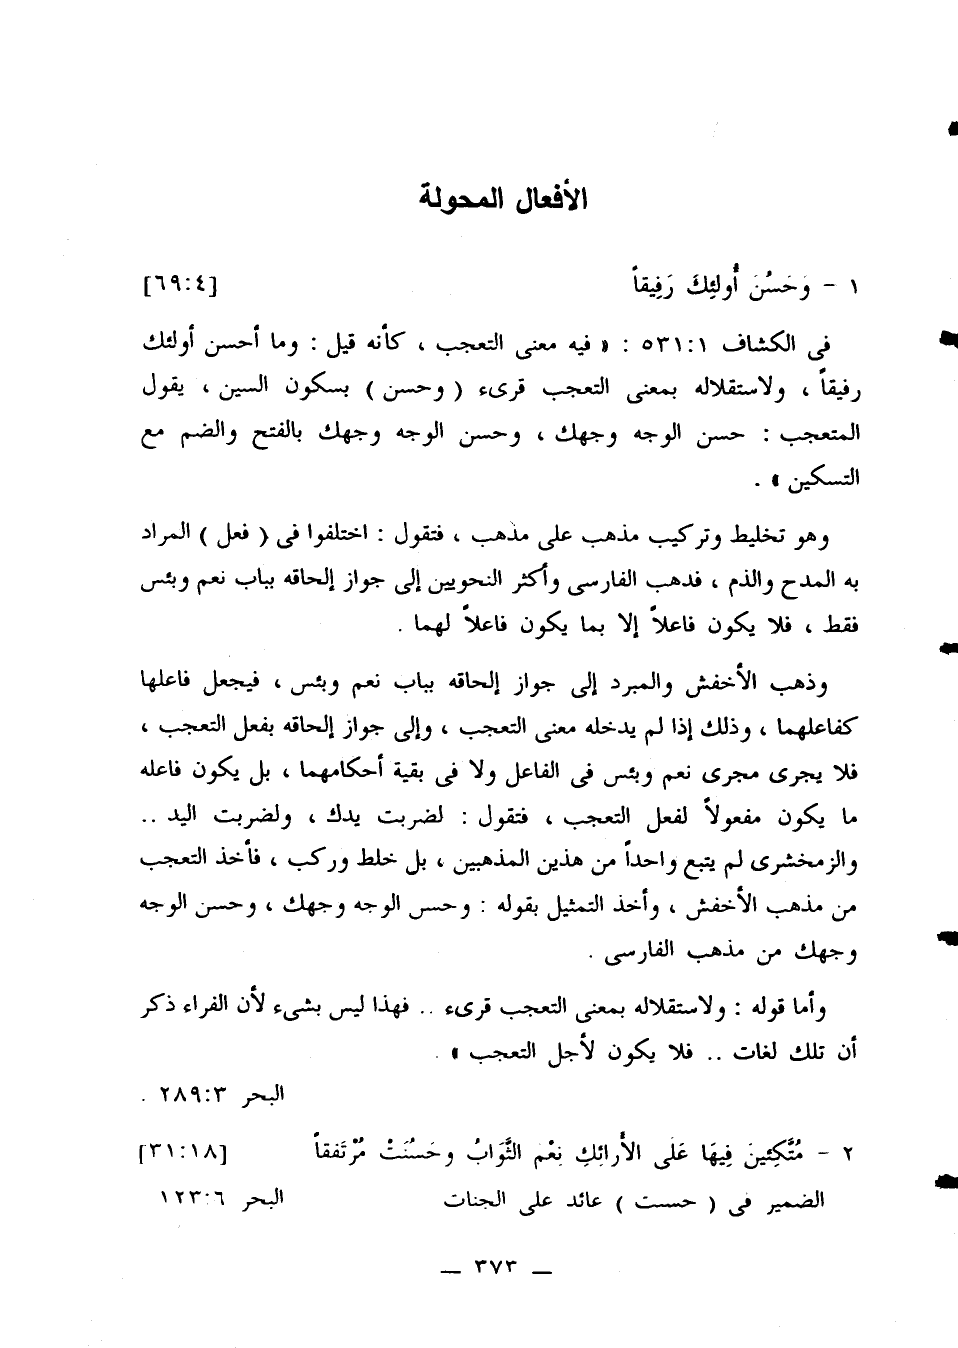 الأفعال المحولة
١ – وَحَسُنَ أُولئِكَ رَفِيقاً [٦٩:٤]
فى الكشاف ٥٣١:١ : « فيه معنى التعجب ، كأنه قيل : وما أحسن أولئك
رفيقاً ، ولاستقلاله بمعنى التعجب قرىء ( وحسن ) بسكون السين ، يقول
المتعجب : حسن الوجه وجهك ، وحسن الوجه وجهك بالفتح والضم مع
التسكين » .
وهو تخليط وتركيب مذهب على مذهب ، فتقول : اختلفوا فى ( فعل ) المراد
به المدح والذم ، فدهب الفارسى وأكثر النحويين إلى جواز إلحاقه بباب نعم وبئس
فقط ، فلا يكون فاعلاً إلا بما يكون فاعلاً لهما .
وذهب الأخفش والمبرد إلى جواز إلحاقه بباب نعم وبئس ، فيجعل فاعلها
كفاعلهما ، وذلك إذا لم يدخله معنى التعجب ، وإلى جواز إلحاقه بفعل التعجب ،
فلا يجرى مجرى نعم وبئس فى الفاعل ولا فى بقية أحكامهما ، بل يكون فاعله
ما يكون مفعولاً لفعل التعجب ، فتقول : لضربت يدك ، ولضربت اليد ..
والزمخشرى لم يتبع واحداً من هذين المذهبين ، بل خلط وركب ، فأخذ التعجب
من مذهب الأخفش ، وأخذ التمثيل بقوله : وحسن الوجه وجهك ، وحسن الوجه
وجهك من مذهب الفارسى .
وأما قوله : ولاستقلاله بمعنى التعجب قرىء .. فهذا ليس بشىء لأن الفراء ذكر
أن تلك لغات .. فلا يكون لأجل التعجب » .
البحر ٢٨٩:٣ .
٢ – مُتَّكِئِينَ فِيهَا عَلَى الأَرائِكِ نِعْم الثَّوَابُ وحَسُنَتْ مُرْتَفقاً [٣١:١٨]
الضمير فى ( حسنت ) عائد على الجنات البحر ١٢٣:٦
— ٣٧٣ —